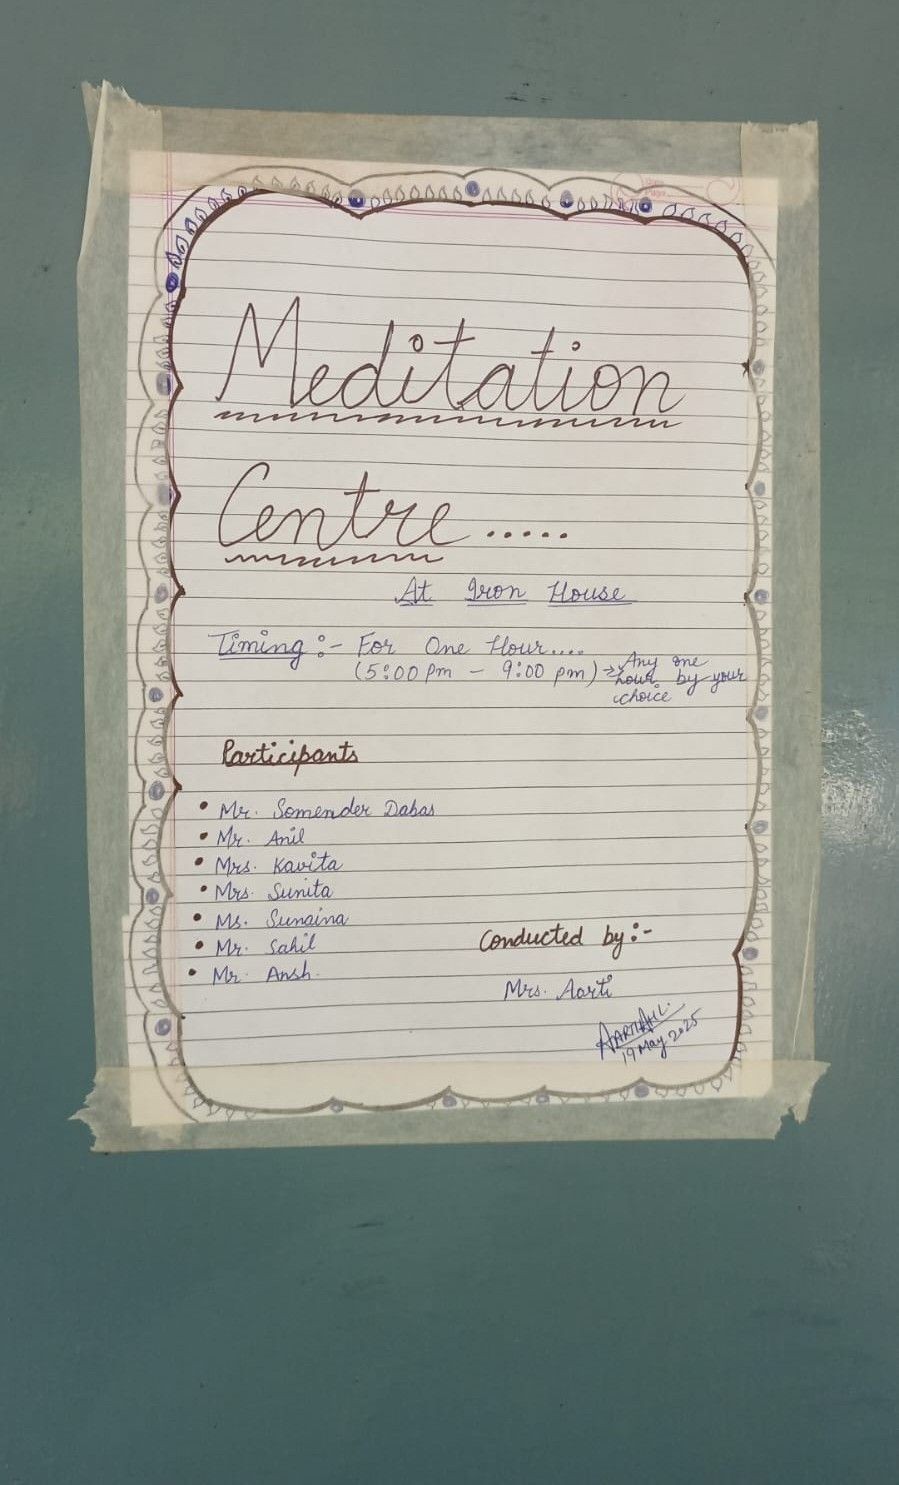 Meditation
Centre.....
At Iron House
Timing :- For One Hour....
(5:00 pm - 9:00 pm) → Any one
hour by your
choice
Participants
• Mr. Somender Dabas
• Mr. Anil
• Mrs. Kavita
• Mrs. Sunita
• Ms. Sunaina
• Mr. Sahil
• Mr. Ansh.
Conducted by :-
Mrs. Aarti
19 May 2025